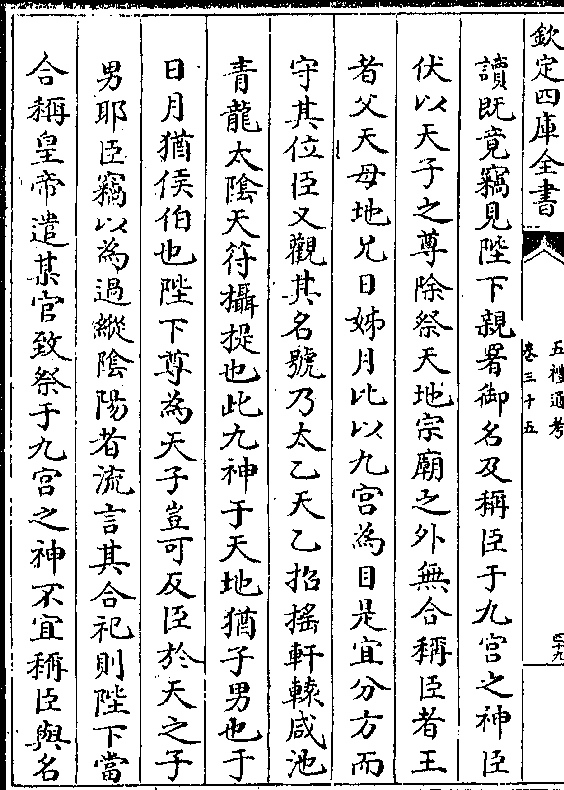 欽定四庫全書
五禮通考
卷三十五
四十九
讀既竟竊見陛下親署御名及稱臣于九宮之神臣
伏以天子之尊除祭天地宗廟之外無合稱臣者王
者父天母地兄日姊月比以九宮為目是宜分方而
守其位臣又觀其名號乃太乙天乙招搖軒轅咸池
青龍太陰天符攝提也此九神于天地猶子男也于
日月猶侯伯也陛下尊為天子豈可反臣於天之子
男耶臣竊以為過縱陰陽者流言其合祀則陛下當
合稱皇帝遣某官致祭于九宮之神不宜稱臣與名